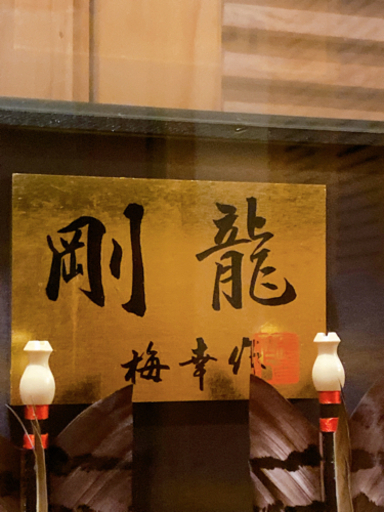 剛龍
梅幸作